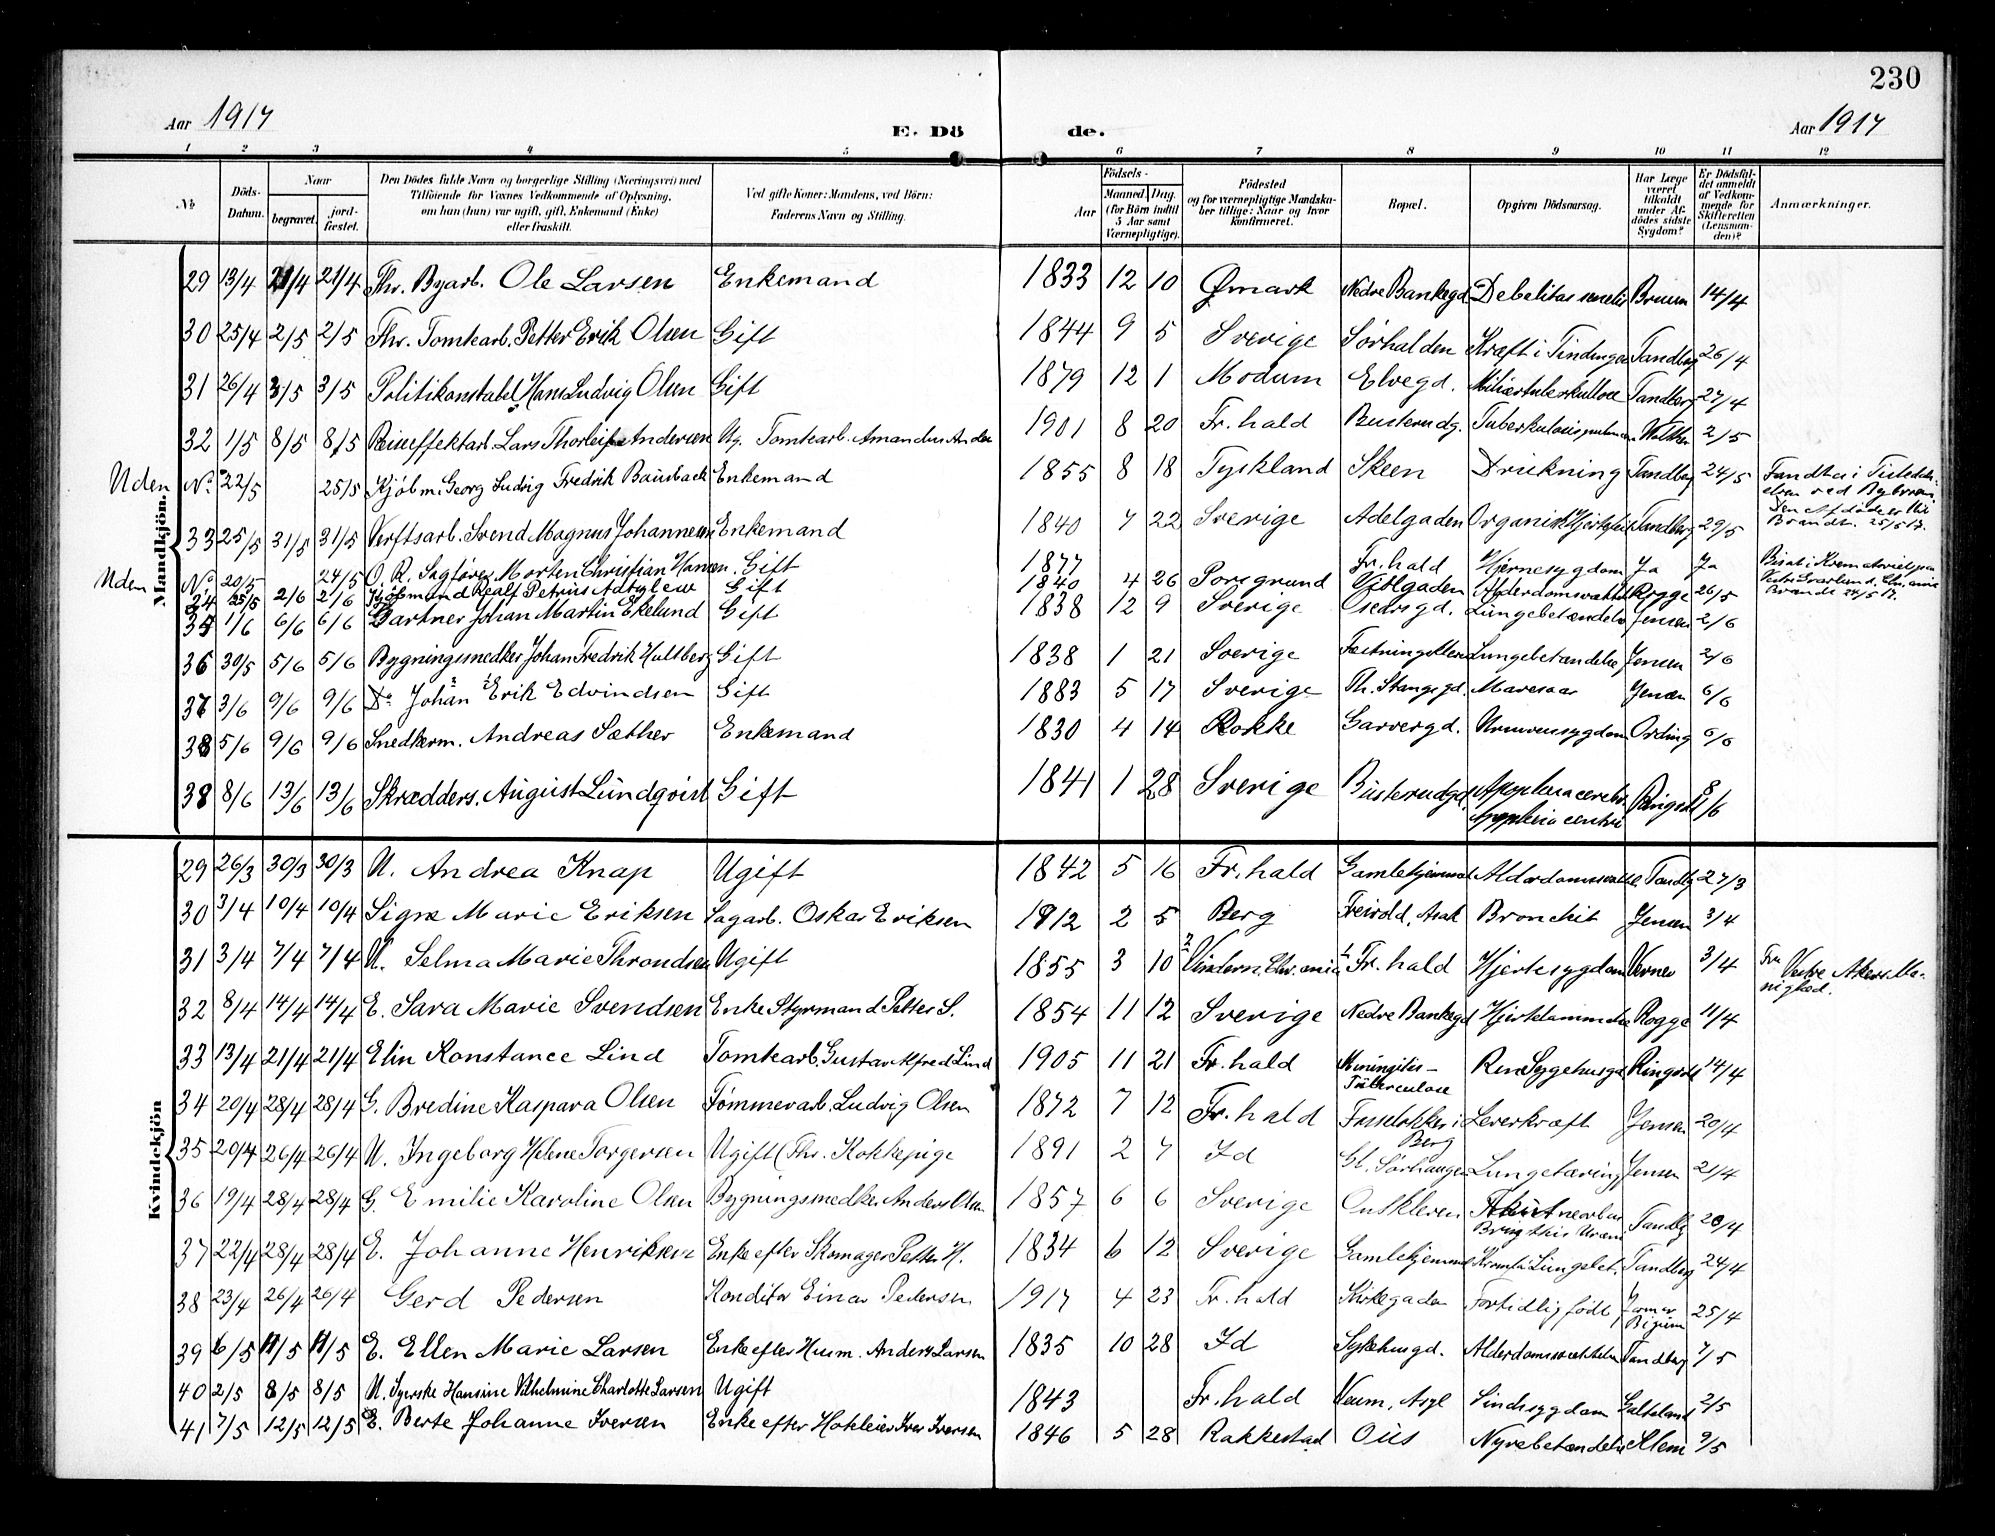 230
Aar 1917 E. Dö de. Aar 1917
1 2 3 4 5 6 7 8 9 10 11 12
No
Döds-Datum.
Naar
begravet.
jord-fæstet.
Den Dödes fulde Navn og borgerlige Stilling (Næringsvei) med
Tilföiende for Voxnes Vedkommende af Oplysning,
om han (hun) var ugift, gift, Enkemand (Enke)
eller fraskilt.
Ved gifte Koner: Mandens, ved Börn:
Faderens Navn og Stilling.
Födsels-
Aar
Maaned. Dag.
(for Börn indtil
5 Aar samt
Værnepligtige).
Födested
og for værnepligtige Mandska-
ber tillige: Naar og hvor
konfirmeret.
Bopæl.
Opgiven Dödsaarsag.
Har Læge
været
tilkaldt
under Af-
dödes sidste
Sygdom?
Er Dödsfal-
det anmeldt
af Vedkom-
mende for
Skifteretten
(Lensman-
den)?
Anmærkninger.
Mandkjön.
29 13/4 21/4 21/4 Fhv. Byarb. Ole Larsen Enkemand 1833 12 10 Ømark Nedre Bankegd Debelitas senelis Bruun 14/4
30 25/4 2/5 2/5 Fhv. Tomtearb. Petter Erik Olsen Gift 1844 9 5 Sverige Sørhalden Kræft i Tindingen Tandberg 26/4
31 26/4 3/5 3/5 Politikonstabel Hans Ludvig Olsen Gift 1879 12 1 Modum Elvegd. Miliærtuberkulose Tandberg 27/4
32 1/5 8/5 8/5 Reiseeffektarb. Lars Thorleif Andersen Ug. Tomtearb. Amandus Ander 1901 8 20 Fr.hald Busterudg. Tuberkulosis pulmon. 2/5
Uden No. 22/5 25/5 Kjøbm. Georg Ludvig Fredrik Bausback Enkemand 1855 8 18 Tyskland Skeen Drukning Tandberg 24/5 Fundet i Tistedals-
elven ved Bybroen.
Brandt. 25/5 17.
33 25/5 31/5 31/5 Verftsarb. Svend Magnus Johannesen Enkemand 1840 7 22 Sverige Adelgaden Organisk Hjertefeil Tandberg 29/5
Uden No. 20/5 24/5 O. R. Sagfører Morten Christian Hansen. Gift 1877 Fr.hald Hjernesygdom Ja Ja Bisat i Krematoriet paa
Vestre Gravlund, Chr.ania
Brandt 24/5 17.
34 25/5 2/6 2/6 Kjøbmand Realf Petrius Gift 1840 4 26 Porsgrund Gjølgaden Alderdomssvækkelse Rogge 26/5
35 1/6 6/6 6/6 Gartner Johan Martin Ekelund Gift 1838 12 9 Sverige Lungebetændelse Jensen 2/6
36 30/5 5/6 5/6 Bygningssnedker Johan Fredrik Hultberg Gift 1838 1 21 Sverige Lungebetændelse Jensen 2/6
37 3/6 9/6 9/6 Do Johan Erik Edvindsen Gift 1883 5 17 Sverige Th. Stangs gd. Mavesaar Jensen 6/6
38 5/6 9/6 9/6 Snedkerm. Andreas Sæther Enkemand 1830 4 14 Rokke Garvergd. Urinveisygdom Ording 6/6
38 8/6 13/6 13/6 Skrædders. August Lundqvist Gift 1841 1 28 Sverige Busterudgd. Apoplexia cerebri Ringsdl 8/6
Kvindekjön
29 26/3 30/3 30/3 U. Andrea Knap Ugift 1842 5 16 Fr.hald Gamlehjemmet Alderdomssvækkelse Tandbg 27/3
30 3/4 10/4 10/4 Signe Marie Eriksen Sagarb. Oskar Eriksen 1912 2 5 Berg Freivold, Asak Bronchit Jensen 3/4
31 3/4 7/4 7/4 U. Selma Marie Throndsen Ugift 1855 3 10 2 Vinderen, Chr.ania 1 Fr.hald Hjertesygdom Verner 3/4 Fra Vestre Akers Me-
nighed.
32 8/4 14/4 14/4 E. Sara Marie Svendsen Enke Styrmand Petter S. 1854 11 12 Sverige Nedre Bankegd Hjertelammelse Rogge 11/4
33 13/4 21/4 21/4 Elin Konstance Lind Tomtearb. Gustav Alfred Lind 1905 11 21 Fr.hald Meningitis-
Tuberculose Ren Sygehusgd Ringsdl 14/4
34 20/4 28/4 28/4 G. Bredine Kaspara Olsen Tømmerarb. Ludvig Olsen 1872 7 12 Fr.hald Fasseløkken i
Berg Leverkræft Jensen 20/4
35 20/4 26/4 26/4 U. Ingeborg Helene Torgersen Ugift (Fhv. Kokkepige 1891 2 7 Id Gl. Sørhaugen Lungetæring Jensen 21/4
36 19/4 28/4 28/4 G. Emilie Karoline Olsen Bygningssnedker Anders Olsen 1857 6 6 Sverige Tandbg 20/4
37 22/4 28/4 28/4 E. Johanne Henriksen Enke efter Skomager Petter H. 1834 6 12 Sverige Gamlehjemmet Tandberg 24/4
38 23/4 26/4 26/4 Gerd Pedersen Konditor Einar Pedersen 1917 4 23 Fr.hald Kirkegaden Fortidlig født 25/4
39 6/5 11/5 11/5 E. Ellen Marie Larsen Enke efter Husm. Anders Larsen 1835 10 28 Id Sykehusgd. Alderdomssvækkelse Tandberg 7/5
40 2/5 8/5 8/5 U. Syerske Hansine Vilhelmine Charlotte Larsen Ugift 1843 Fr.hald Asyl Sindssygdom Galteland 2/5
41 7/5 12/5 12/5 E. Berte Johanne Iversen Enke efter Hokleier Iver Iversen 1846 5 28 Rakkestad Ous Nyrebetændelse Klem 9/5